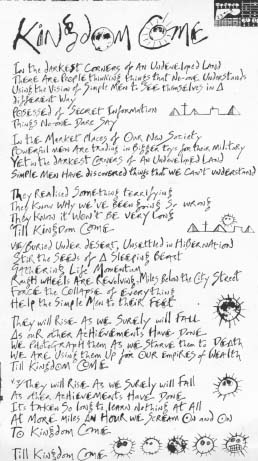 Kingdom Come
In the darkest corners of An Undeveloped Land
There Are People thinking things that No-one Understands
Using the Vision of Simple Men to See themselves in A
different Way
Posessed of Secret Information
Things No-one Dare Say
In the Market Places of Our New Society
Powerful men Are trading in Bigger toys for their military
Yet in the Darkest Corners of An Undeveloped Land
Simple Men Have discovered things that We Can't Understand
They Realised Something terrifying
They Know Why we've Been going So wrong
They Know it Won't Be Very Long
Till Kingdom Come
Buried Under Desert, Unsettled in Hibernation
Stir the Seeds of A Sleeping Beast
Gathering Life Momentum
Wheels Are Revolving Miles Below the City Street
Force the Collapse of Everything
Help the Simple Men to their Feet
They will Rise As We Surely will Fall
As our other Achievements Have Done
We Photograph them As We Starve them to Death
We Are Using them Up for Our Empires of Wealth
Till Kingdom Come
They will Rise As We Surely will Fall
As other Achievements Have Done
It's taken So long to learn Nothing At All
At More miles An Hour We Scream On and On
To Kingdom Come
Till Kingdom Come